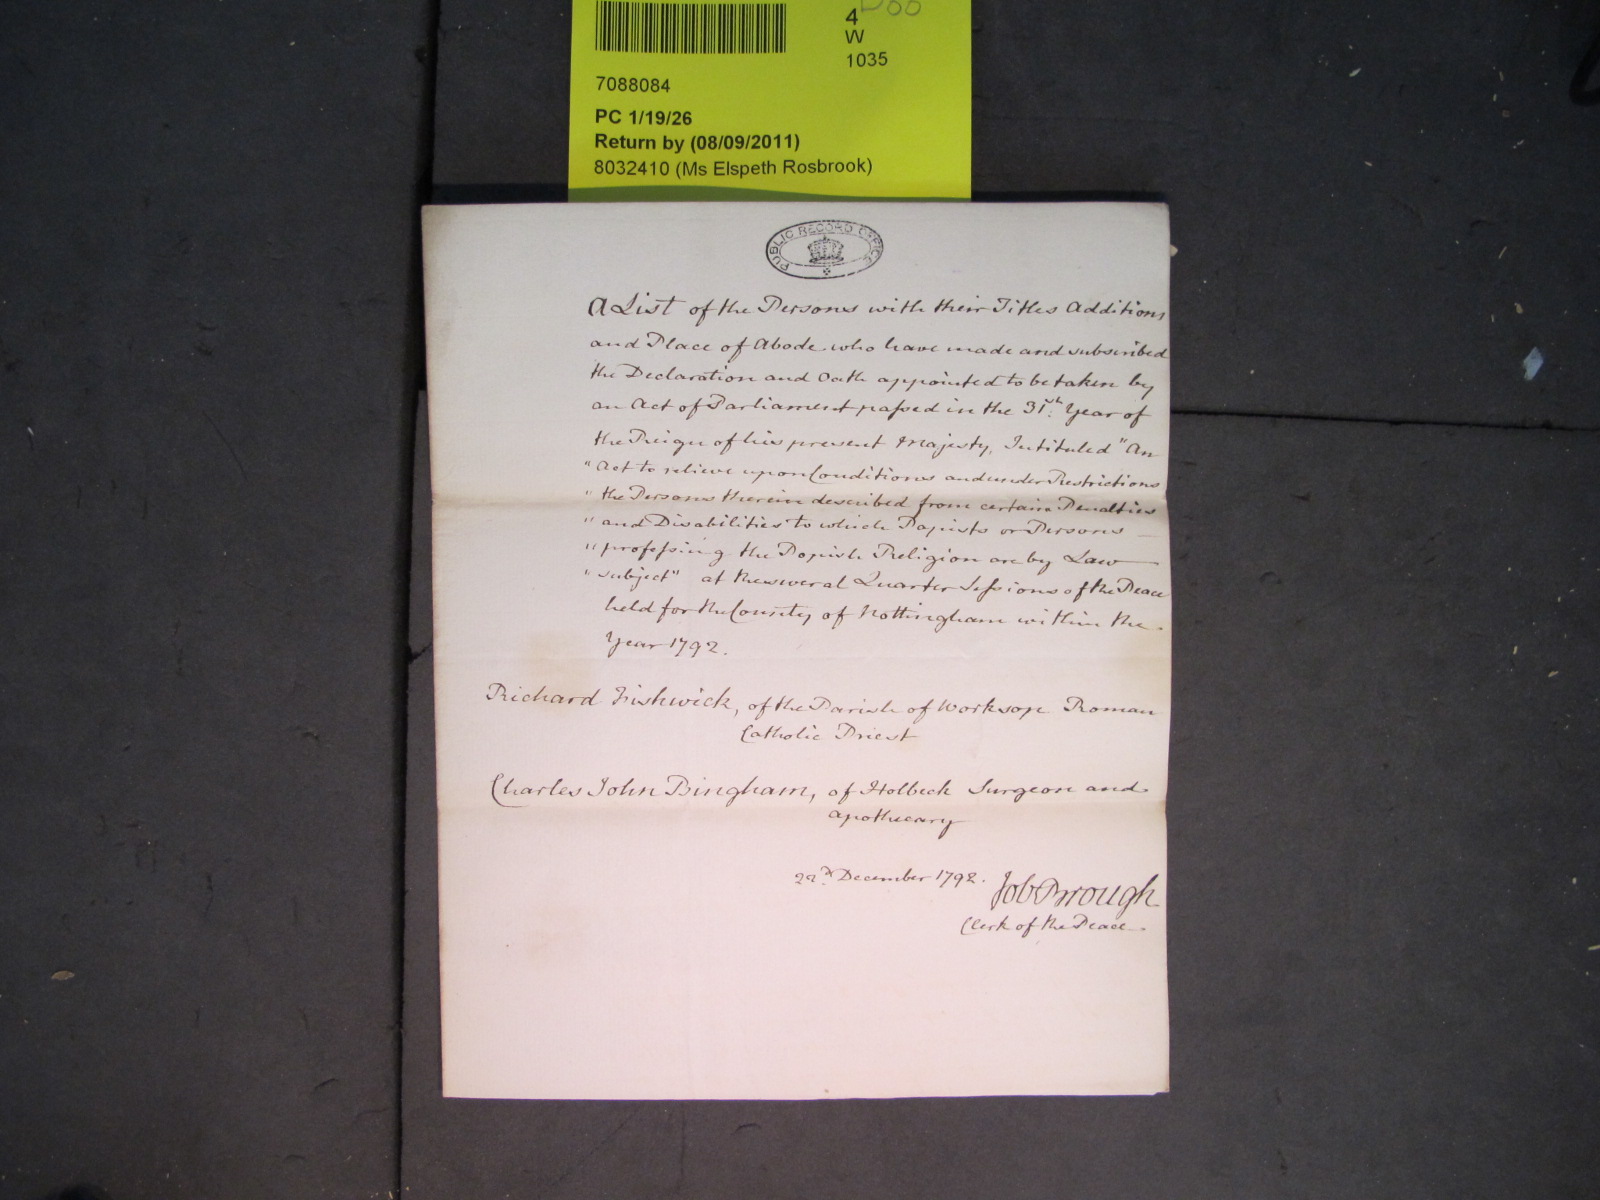 4
W
1035
7088084
PC 1/19/26
Return by (08/09/2011)
8032410 (Ms Elspeth Rosbrook)
PUBLIC RECORD OFFICE
A List of the Persons with their Titles Additions
and Place of Abode who have made and subscribed
the Declaration and Oath appointed to be taken by
an Act of Parliament passed in the 31st. Year of
the Reign of his present Majesty, Intituled "An
"Act to relieve upon Conditions and under Restrictions
"the Persons therein described from certain Penalties
"and Disabilities to which Papists or Persons
"professing the Popish Religion are by Law
"subject" at the several Quarter Sessions of the Peace
held for the County of Nottingham within the
Year 1792.
Richard Fishwick, of the Parish of Worksop Roman
Catholic Priest
Charles John Bingham, of Holbeck Surgeon and
Apothecary
22d. December 1792. Job Brough
Clerk of the Peace